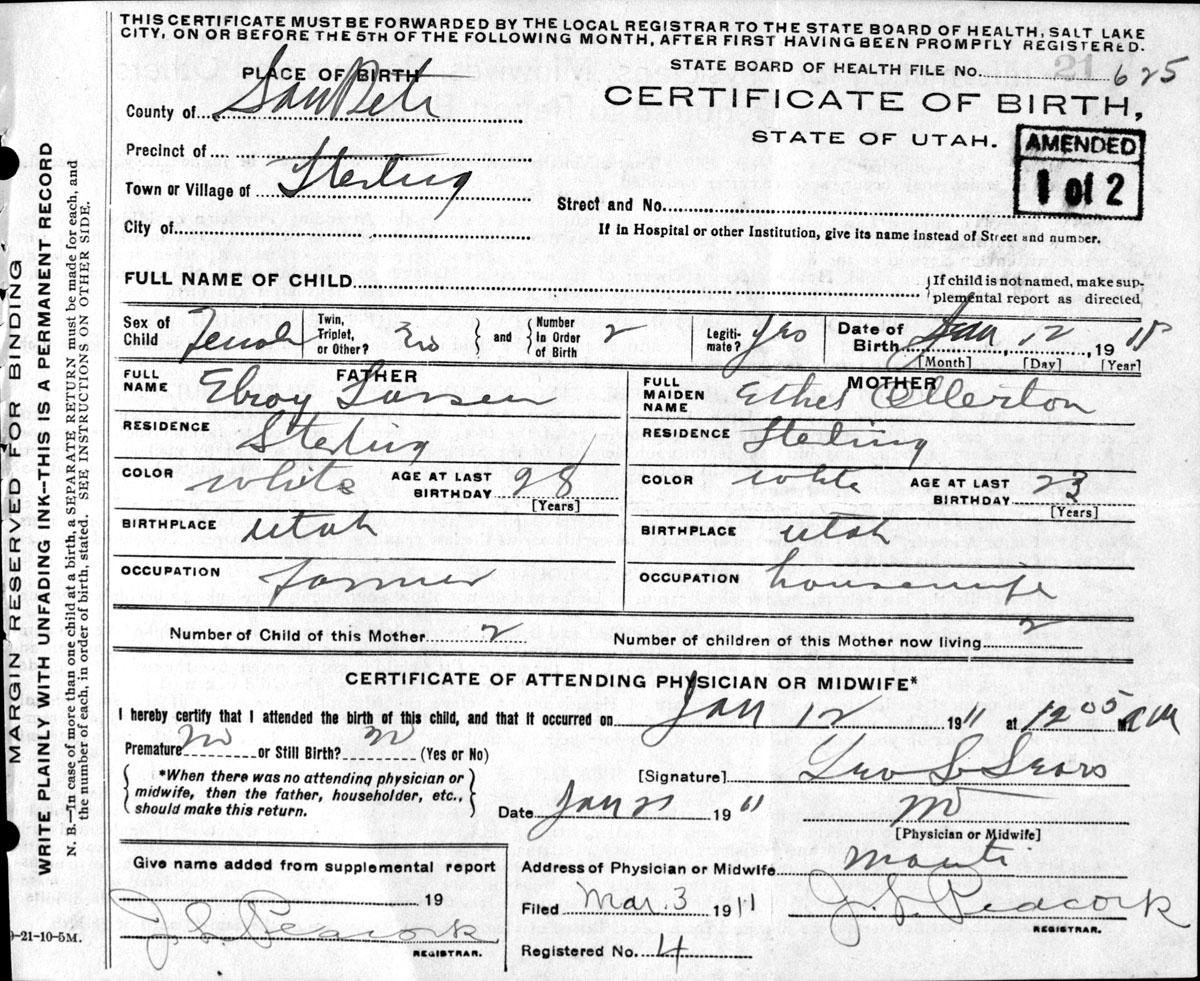 THIS CERTIFICATE MUST BE FORWARDED BY THE LOCAL REGISTRAR TO THE STATE BOARD OF HEALTH, SALT LAKE
CITY, ON OR BEFORE THE 5TH OF THE FOLLOWING MONTH, AFTER FIRST HAVING BEEN PROMPTLY REGISTERED.
STATE BOARD OF HEALTH FILE No. 21 625
PLACE OF BIRTH
County of SanPete
CERTIFICATE OF BIRTH,
STATE OF UTAH.
AMENDED
1 of 2
Precinct of
Town or Village of Sterling
Street and No.
City of
If in Hospital or other Institution, give its name instead of Street and number.
FULL NAME OF CHILD
If child is not named, make sup-
plemental report as directed
Sex of Child Female Twin, Triplet, or Other? No and Number In Order of Birth 2 Legiti- mate? Yes Date of Birth Jan 12, 19
[Month] [Day] [Year]
FATHER
FULL NAME Elroy Larsen
MOTHER
FULL MAIDEN NAME Ethel Ollerton
RESIDENCE Sterling
RESIDENCE Sterling
COLOR white AGE AT LAST BIRTHDAY 28 [Years]
COLOR white AGE AT LAST BIRTHDAY 23 [Years]
BIRTHPLACE Utah
BIRTHPLACE Utah
OCCUPATION farmer
OCCUPATION housewife
Number of Child of this Mother 2 Number of children of this Mother now living 2
CERTIFICATE OF ATTENDING PHYSICIAN OR MIDWIFE*
I hereby certify that I attended the birth of this child, and that it occurred on Jan 12 1911 at 12 00 M
Premature no or Still Birth? no (Yes or No)
*When there was no attending physician or
midwife, then the father, householder, etc.,
should make this return.
[Signature] Geo L Sears
Date Jan 21 1911
[Physician or Midwife]
Give name added from supplemental report
19
J. L. Peacock
REGISTRAR.
Address of Physician or Midwife Manti
Filed Mar. 3 1911 J. L. Peacock
REGISTRAR.
Registered No. 4
-21-10-5M.
MARGIN RESERVED FOR BINDING
WRITE PLAINLY WITH UNFADING INK—THIS IS A PERMANENT RECORD
N. B.—In case of more than one child at a birth, a SEPARATE RETURN must be made for each, and
the number of each, in order of birth, stated. SEE INSTRUCTIONS ON OTHER SIDE.